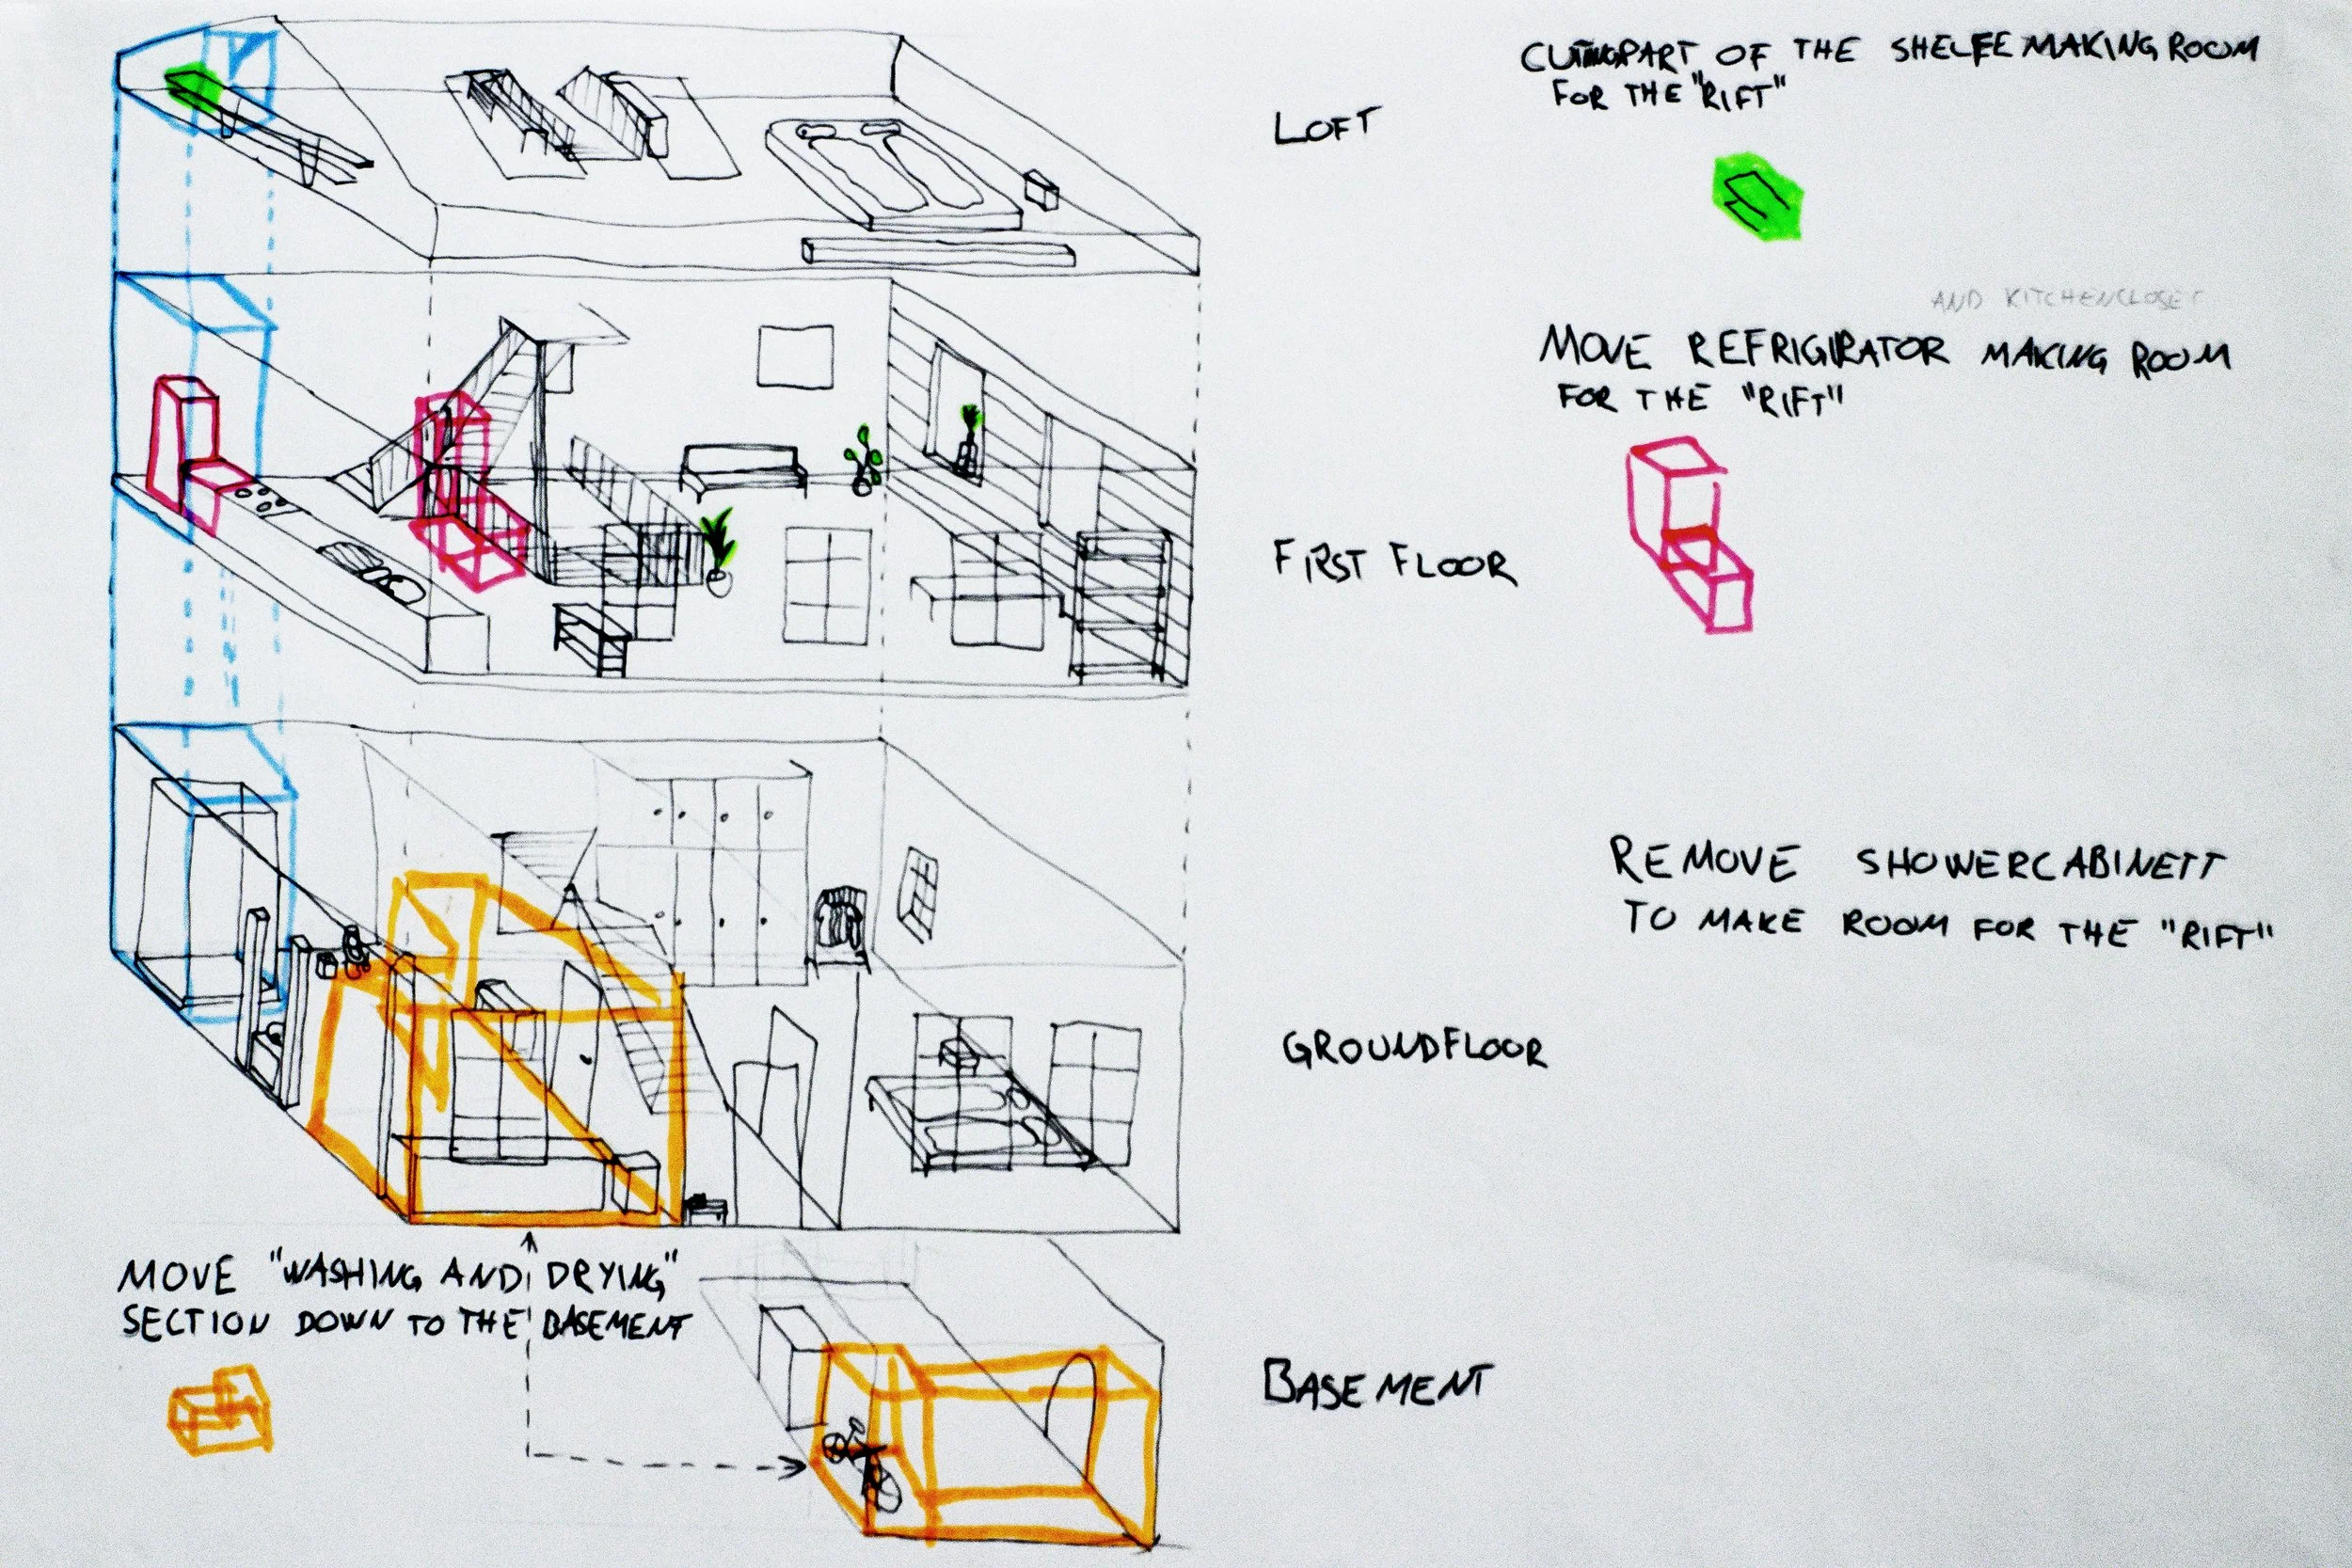 CUTTING PART OF THE SHELFE MAKING ROOM
FOR THE "RIFT"
LOFT
AND KITCHENCLOSET
MOVE REFRIGIRATOR MAKING ROOM
FOR THE "RIFT"
FIRST FLOOR
REMOVE SHOWERCABINETT
TO MAKE ROOM FOR THE "RIFT"
GROUNDFLOOR
MOVE "WASHING AND DRYING"
SECTION DOWN TO THE BASEMENT
BASEMENT